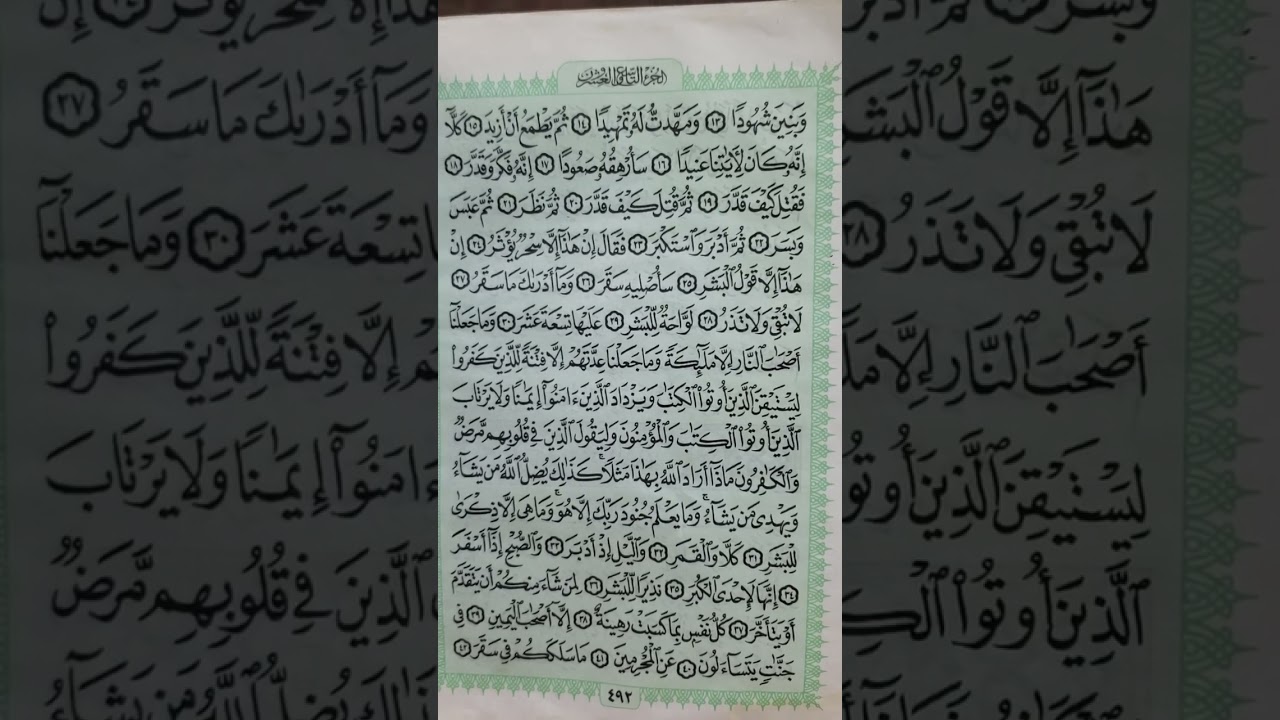 الجزء التاسع والعشرون
وَبَنِينَ شُهُودًا ١٣ وَمَهَّدتُّ لَهُۥ تَمۡهِيدًا ١٤ ثُمَّ يَطۡمَعُ أَنۡ أَزِيدَ ١٥ كـَلَّآ
إِنَّهُۥ كَانَ لِأٓيَٰتِنَا عَنِيدًا ١٦ سَأُرۡهِقُهُۥ صَعُودًا ١٧ إِنَّهُۥ فَكَّرَ وَقَدَّرَ ١٨
فَقُتِلَ كَيۡفَ قَدَّرَ ١٩ ثُمَّ قُتِلَ كَيۡفَ قَدَّرَ ٢٠ ثُمَّ نَظَرَ ٢١ ثُمَّ عَبَسَ
وَبَسَرَ ٢٢ ثُمَّ أَدۡبَرَ وَٱسۡتَكۡبَرَ ٢٣ فَقَالَ إِنۡ هَٰذَآ إِلَّا سِحۡرٞ يُؤۡثَرُ ٢٤ إِنۡ
هَٰذَآ إِلَّا قَوۡلُ ٱلۡبَشَرِ ٢٥ سَأُصۡلِيهِ سَقَرَ ٢٦ وَمَآ أَدۡرَىٰكَ مَا سَقَرُ ٢٧
لَا تُبۡقِي وَلَا تَذَرُ ٢٨ لَوَّاحَةٞ لِّلۡبَشَرِ ٢٩ عَلَيۡهَا تِسۡعَةَ عَشَرَ ٣٠ وَمَا جَعَلۡنَآ
أَصۡحَٰبَ ٱلنَّارِ إِلَّا مَلَٰٓئِكَةٗ وَمَا جَعَلۡنَا عِدَّتَهُمۡ إِلَّا فِتۡنَةٗ لِّلَّذِينَ كَفَرُواْ
لِيَسۡتَيۡقِنَ ٱلَّذِينَ أُوتُواْ ٱلۡكِتَٰبَ وَيَزۡدَادَ ٱلَّذِينَ ءَامَنُوٓاْ إِيمَٰنٗا وَلَا يَرۡتَابَ
ٱلَّذِينَ أُوتُواْ ٱلۡكِتَٰبَ وَٱلۡمُؤۡمِنُونَ وَلِيَقُولَ ٱلَّذِينَ فِي قُلُوبِهِم مَّرَضٞ
وَٱلۡكَٰفِرُونَ مَاذَآ أَرَادَ ٱللَّهُ بِهَٰذَا مَثَلٗاۚ كَذَٰلِكَ يُضِلُّ ٱللَّهُ مَن يَشَآءُ
وَيَهۡدِي مَن يَشَآءُۚ وَمَا يَعۡلَمُ جُنُودَ رَبِّكَ إِلَّا هُوَۚ وَمَا هِيَ إِلَّا ذِكۡرَىٰ
لِلۡبَشَرِ ٣١ كَلَّا وَٱلۡقَمَرِ ٣٢ وَٱلَّيۡلِ إِذۡ أَدۡبَرَ ٣٣ وَٱلصُّبۡحِ إِذَآ أَسۡفَرَ
٣٤ إِنَّهَا لَإِحۡدَى ٱلۡكُبَرِ ٣٥ نَذِيرٗا لِّلۡبَشَرِ ٣٦ لِمَن شَآءَ مِنكُمۡ أَن يَتَقَدَّمَ
أَوۡ يَتَأَخَّرَ ٣٧ كُلُّ نَفۡسِۭ بِمَا كَسَبَتۡ رَهِينَةٌ ٣٨ إِلَّآ أَصۡحَٰبَ ٱلۡيَمِينِ ٣٩ فِي
جَنَّٰتٖ يَتَسَآءَلُونَ ٤٠ عَنِ ٱلۡمُجۡرِمِينَ ٤١ مَا سَلَكَكُمۡ فِي سَقَرَ ٤٢
٤٩٢